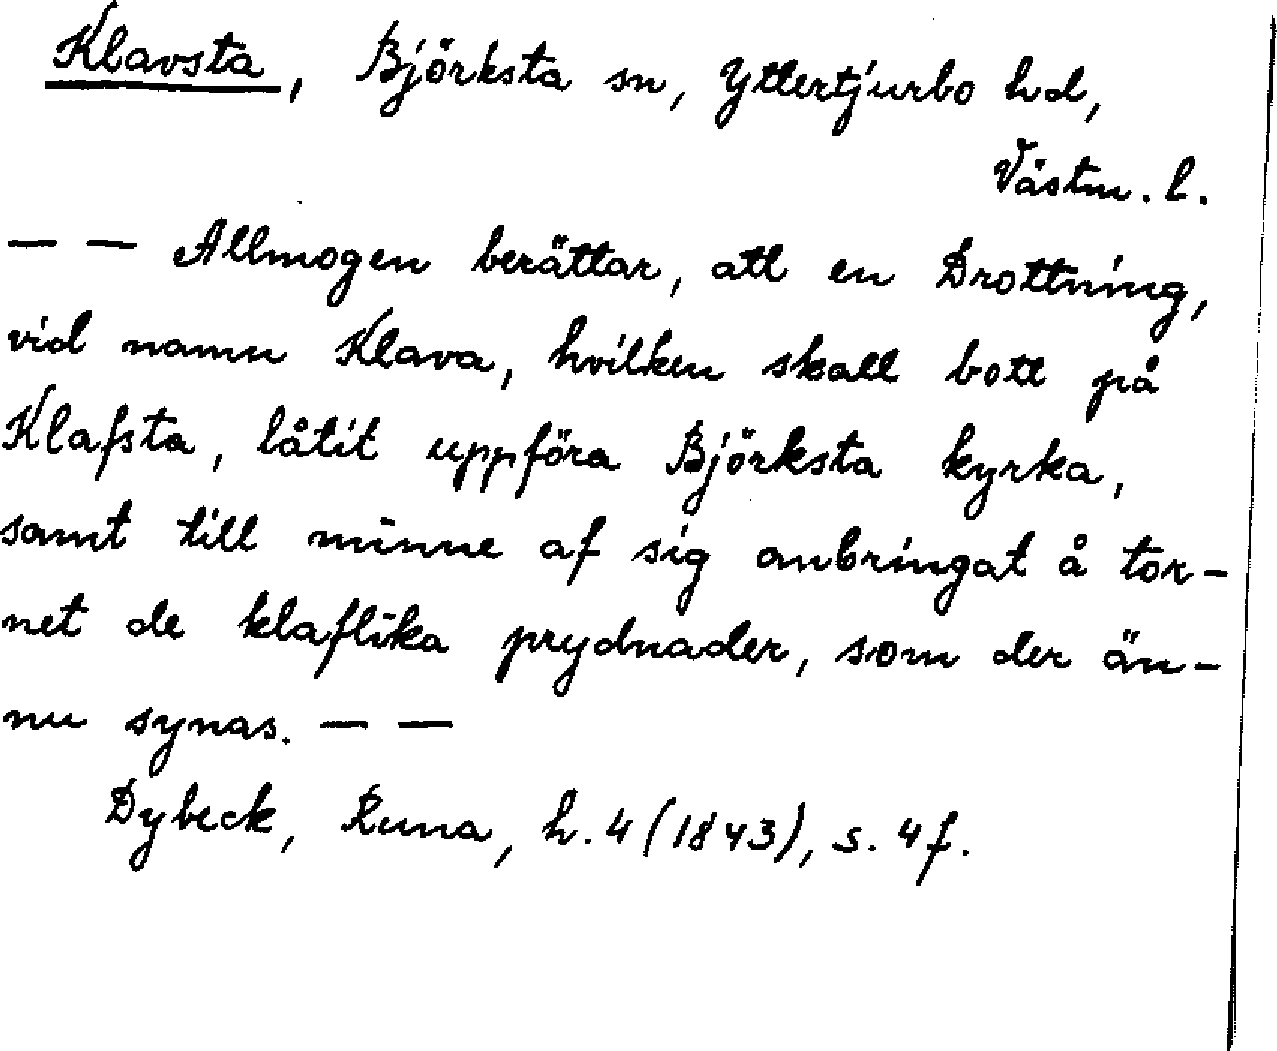 Klavsta, Björksta sn, Yttertjurbo hd,
Västm. l.
— — Allmogen berättar, att en Drottning,
vid namn Klava, hvilken skall bott på
Klafsta, låtit uppföra Björksta kyrka,
samt till minne af sig anbringat å tor-
net de klaflika prydnader, som der än-
nu synas. — —
Dybeck, Runa, h. 4 (1843), s. 4 f.